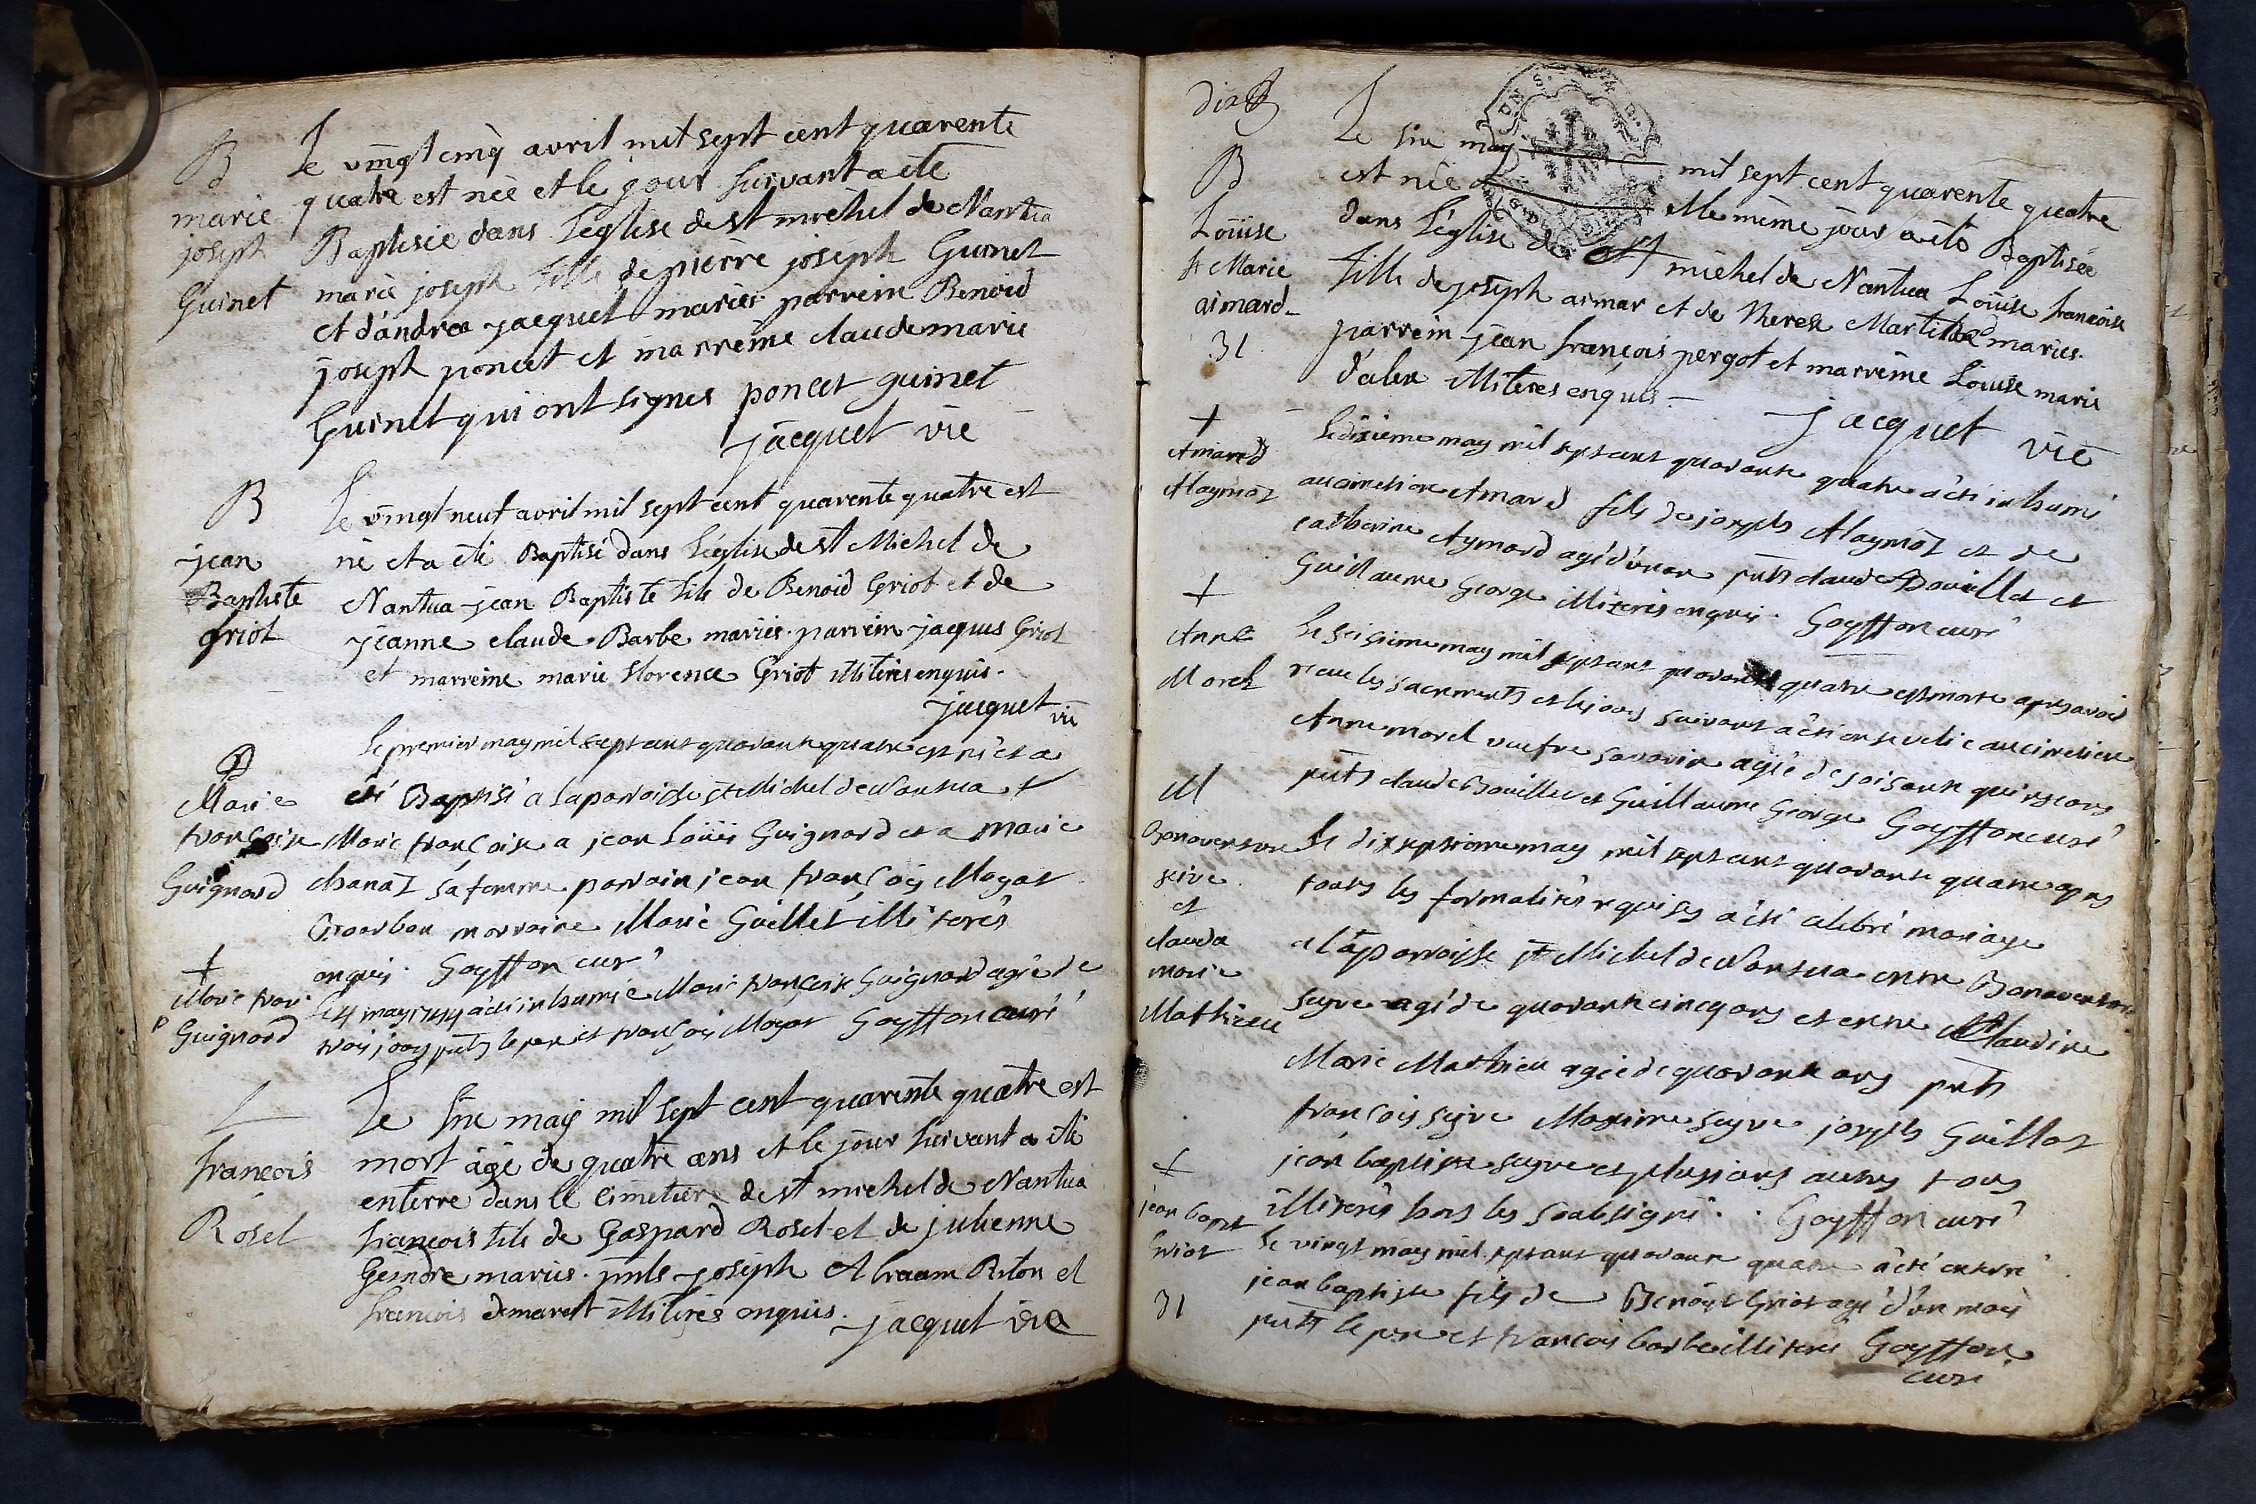 B
marie
joseph
Guinet
Le vingt cinq avril mil sept cent quarente
quatre est née et le jour suivant a été
Baptisée dans l'eglise de st michel de Nantua
marie joseph fille de pierre joseph Guinet
et d'andrea jacquet mariés. parrein Benoid
joseph poncet et marreine claude marie
Guinet qui ont signés poncet guinet
jacquet vic
B
jean
Baptiste
griot
Le vingt neuf avril mil sept cent quarente quatre est
né et a été Baptisé dans l'eglise de st Michel de
Nantua jean Baptiste fils de Benoid Griot et de
jeanne claude Barbe mariés. parrein jacques Griot
et marreine marie florence Griot illiterés enquis.
jacquet vic
B
Marie
françoise
Guignard
Le premier may mil sept cent quarante quatre est né et a
été Baptisé a la paroisse st Michel de Nantua
Marie françoise a jean Loüis Guignard et a Marie
chanaz sa femme parrain jean françois Moyat
Bourbon marraine Marie Guillet illiterés
enquis. Goyffon curé
+
Marie fran.
Guignard
p
Le 4 may 1744 a été inhumée Marie françoise Guignard agée de
trois jours pnts le pere et françois Moyat Goyffon curé
L
françois
Rosel
Le six may mil sept cent quarente quatre est
mort âgé de quatre ans et le jour suivant a été
enterre dans le cimetiere de st michel de Nantua
françois fils de Gaspard Rosel et de julienne
Geindre mariés. pnts joseph Abraam Riton et
francois demaret illiterés enquis. jacquet vic
B
Loüise
fr Marie
aimard
31
Le six may mil sept cent quarente quatre
est née et le même jour a été Baptisée
dans l'église de st michel de Nantua Loüise francoise
fille de joseph aimar et de Therese Martine mariés.
parrein jean françois pergot et marreine Loüise marie
d'alex illiteres enquis.
jacquet vic
+
Amard
Alaymoz
Le dixieme may mil sept cent quarante quatre a été inhumé
au cimetiere Amard fils de joseph Alaymoz et de
catherine Aymard agé d'un an pnts claude Bouillet et
Guillaume George illiterés enquis. Goyffon curé
+
Anne
Morel
Le seisieme may mil sept cent quarante quatre est morte apres avoir
receu les sacrements et le jour suivant a été ensevelie au cimetiere
Anne morel veufve savarin agée de soisante quinze ans
pnts claude Bouillet et Guillaume George Goyffon curé
M
Bonaventure
seive
et
clauda
marie
Mathieu
Le dix septieme may mil sept cent quarante quatre apres
toutes les formalités requises a été celebré mariage
a la paroisse st Michel de Nantua entre Bonaventure
seyve agé de quarante cinq ans et entre Claudine
Marie Mathieu agée de quarante ans pnts
françois seyve Maxime seyve joseph Guillot
jean baptiste seyve et plusieurs autres tous
illiterés hors les soubsignés. Goyffon curé
+
jean bapt
Griot
31
Le vingt may mil sept cent quarante quatre a été enterré
jean baptiste fils de Benoist Griot agé d'un mois
pnts le pere et francois barbe illiteres Goyffon
curé